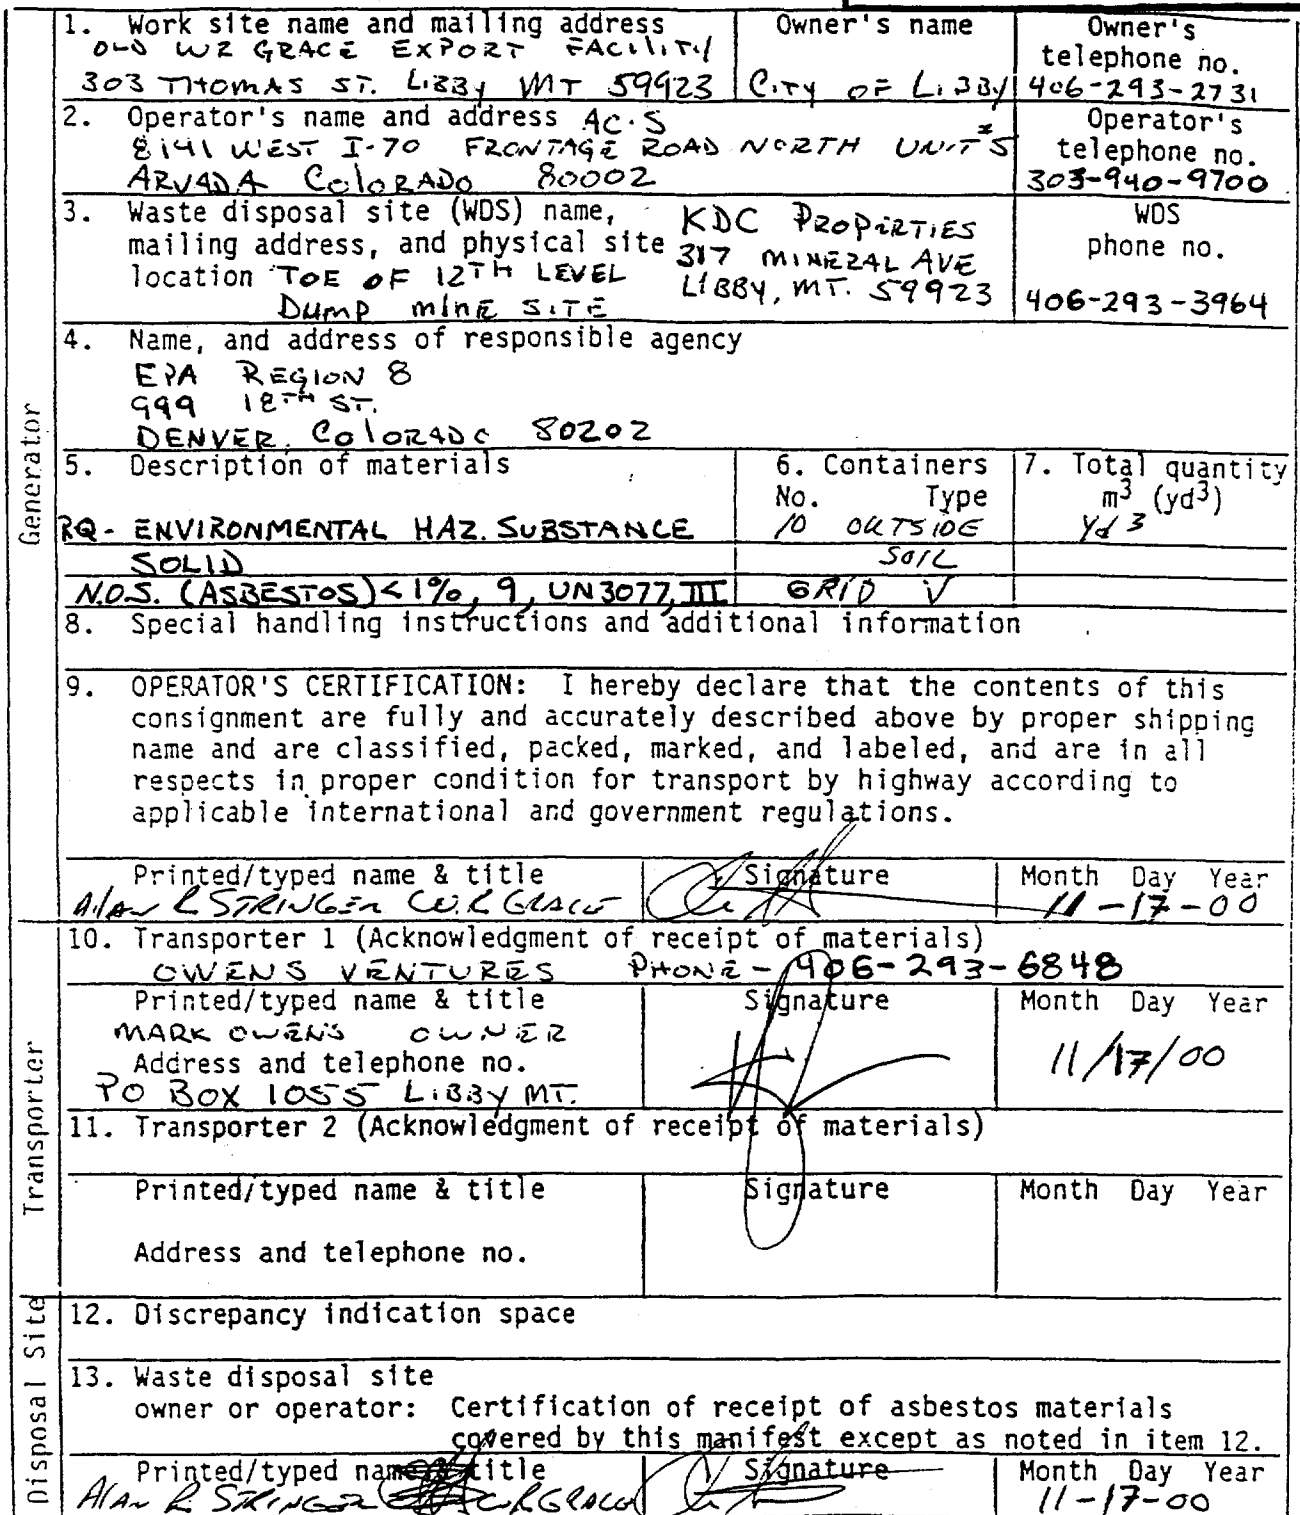 Generator
1. Work site name and mailing address
OLD WR GRACE EXPORT FACILITY
303 THOMAS ST. LIBBY MT 59923
Owner's name
CITY OF LIBBY
Owner's
telephone no.
406-293-2731
2. Operator's name and address AC.S
8141 WEST I-70 FRONTAGE ROAD NORTH UNIT #5
ARVADA COLORADO 80002
Operator's
telephone no.
303-940-9700
3. Waste disposal site (WDS) name,
mailing address, and physical site
location TOE OF 12TH LEVEL
DUMP MINE SITE
KDC PROPERTIES
317 MINERAL AVE
LIBBY, MT. 59923
WDS
phone no.
406-293-3964
4. Name, and address of responsible agency
EPA REGION 8
999 18TH ST.
DENVER, COLORADO 80202
5. Description of materials
RQ- ENVIRONMENTAL HAZ. SUBSTANCE
SOLID
N.O.S. (ASBESTOS) <1%, 9, UN3077, III
6. Containers
No. Type
10 OUTSIDE
SOIL
GRID V
7. Total quantity
m3 (yd3)
Yd 3
8. Special handling instructions and additional information
9. OPERATOR'S CERTIFICATION: I hereby declare that the contents of this
consignment are fully and accurately described above by proper shipping
name and are classified, packed, marked, and labeled, and are in all
respects in proper condition for transport by highway according to
applicable international and government regulations.
Printed/typed name & title
Alan R STRINGER W.R GRACE
Signature
Month Day Year
11-17-00
Transporter
10. Transporter 1 (Acknowledgment of receipt of materials)
OWENS VENTURES PHONE - 406-293-6848
Printed/typed name & title
MARK OWENS OWNER
Address and telephone no.
PO BOX 1055 LIBBY MT.
Signature
Month Day Year
11/17/00
11. Transporter 2 (Acknowledgment of receipt of materials)
Printed/typed name & title
Signature
Month Day Year
Address and telephone no.
Disposal Site
12. Discrepancy indication space
13. Waste disposal site
owner or operator: Certification of receipt of asbestos materials
covered by this manifest except as noted in item 12.
Printed/typed name & title
Alan R STRINGER WRGRACE
Signature
Month Day Year
11-17-00